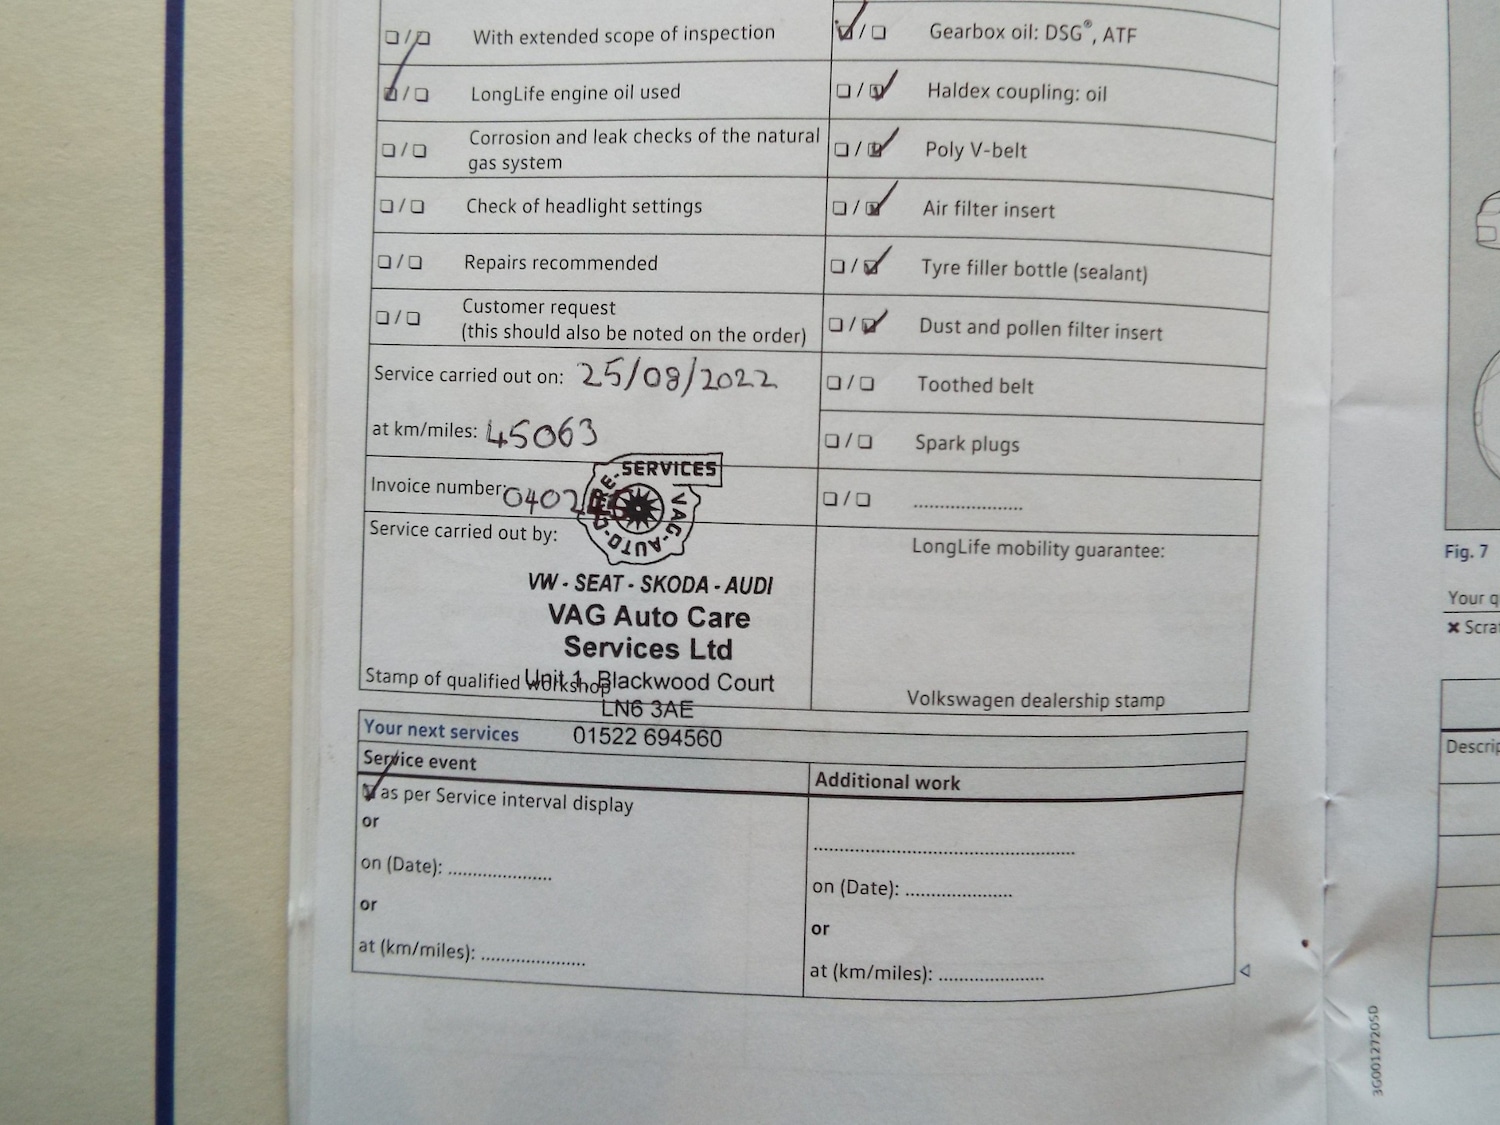 With extended scope of inspection
LongLife engine oil used
Corrosion and leak checks of the natural
gas system
Check of headlight settings
Repairs recommended
Customer request
(this should also be noted on the order)
Service carried out on: 25/08/2022
at km/miles: 45063
Invoice number:
Service carried out by:
SERVICES
VAG-AUTO-CARE-
VW - SEAT - SKODA - AUDI
VAG Auto Care
Services Ltd
Unit 1, Blackwood Court
LN6 3AE
01522 694560
Stamp of qualified workshop
Gearbox oil: DSG®, ATF
Haldex coupling: oil
Poly V-belt
Air filter insert
Tyre filler bottle (sealant)
Dust and pollen filter insert
Toothed belt
Spark plugs
......................
LongLife mobility guarantee:
Volkswagen dealership stamp
Your next services
Service event
as per Service interval display
or
on (Date): .....................
or
at (km/miles): .....................
Additional work
.....................................................
on (Date): .....................
or
at (km/miles): .....................
3G0012720SD
Fig. 7
Your q
Scra
Descrip